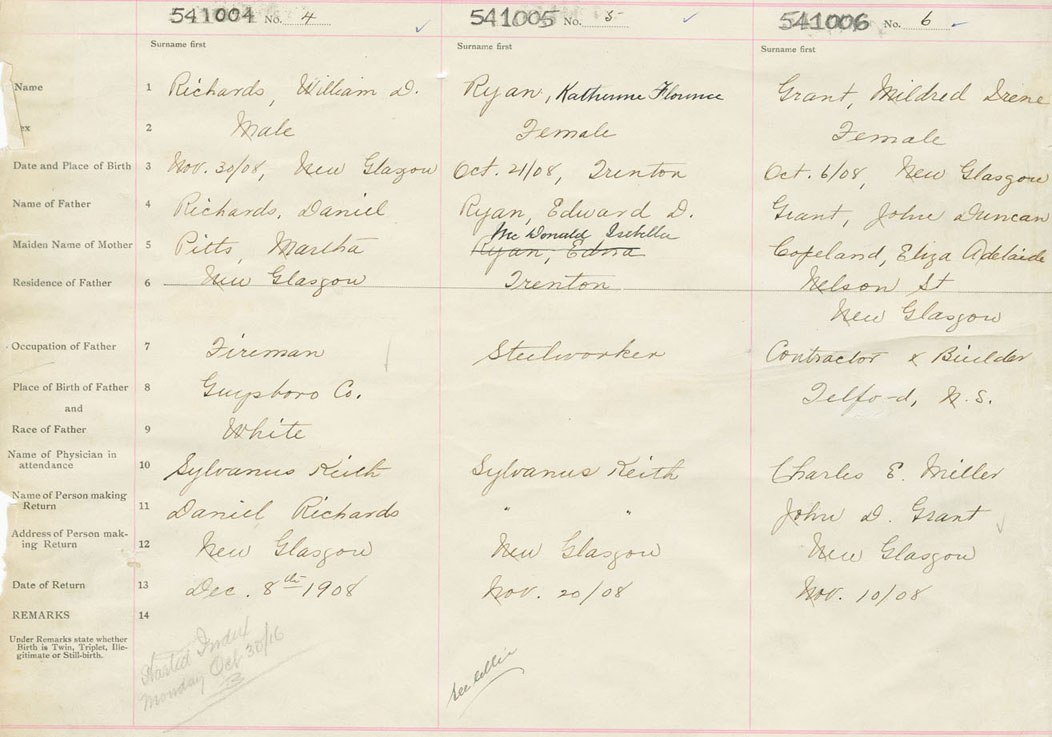 541004 No. 4 541005 No. 5 541006 No. 6
Surname first Surname first Surname first
Name 1 Richards, William D. Ryan, Katherine Florence Grant, Mildred Irene
ex 2 Male Female Female
Date and Place of Birth 3 Nov. 30/08, New Glasgow Oct. 21/08, Trenton Oct. 6/08, New Glasgow
Name of Father 4 Richards, Daniel Ryan, Edward D. Grant, John Duncan
Mc Donald Isabella
Maiden Name of Mother 5 Pitts, Martha Ryan, Edna Copeland, Eliza Adelaide
Residence of Father 6 New Glasgow Trenton Nelson St
New Glasgow
Occupation of Father 7 Fireman Steelworker Contractor & Builder
Place of Birth of Father 8 Guysboro Co. Telford, N.S.
and
Race of Father 9 White
Name of Physician in
attendance 10 Sylvanus Keith Sylvanus Keith Charles E. Miller
Name of Person making
Return 11 Daniel Richards " " John D. Grant
Address of Person mak-
ing Return 12 New Glasgow New Glasgow New Glasgow
Date of Return 13 Dec. 8th 1908 Nov. 20/08 Nov. 10/08
REMARKS 14
Under Remarks state whether
Birth is Twin, Triplet, Ille-
gitimate or Still-birth.
Started Index
Monday Oct 30/16
see